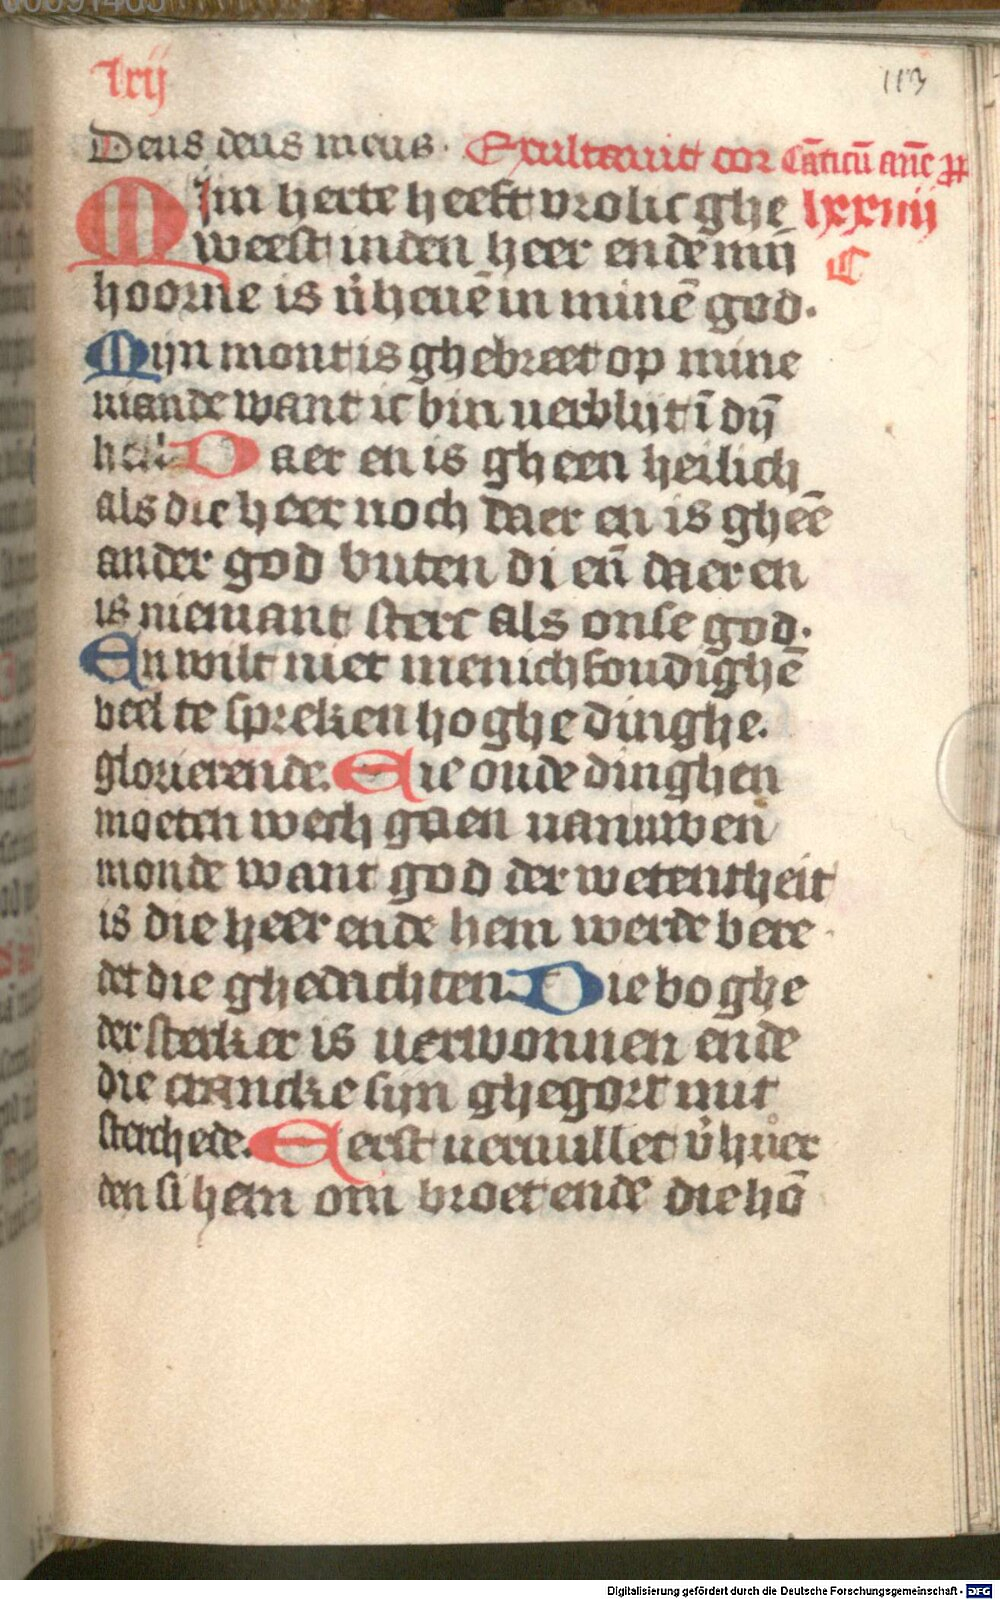 lxij
113
Deus deus meus. Exultauit cor Cāticū añe ꝓp
MIin herte heeft vrolic ghe lxxiiij
weest inden heer ende mijn̄ C
hoorne is v̄heuē in minē god.
Mijn mont is ghebreet op mine
viande want ic bin verblijt ī dijn̄
heil. Daer en is gheen heilich
als die heer noch daer en is gheē
ander god buten di eñ daer en
is niemant sterc als onse god.
En wilt niet menichfoudighē
veel te spreken hoghe dinghe.
glorierende. Die oude dinghen
moeten wech gaen van uwen
monde want god der wetentheit
is die heer ende hem werde bere
det die ghedachten. Die boghe
der sterker is verwonnen ende
die crancke sijn ghegort mit
sterchede. Eerst vervullet v̄hůer
den si hem om broet ende die hō
Digitalisierung gefördert durch die Deutsche Forschungsgemeinschaft - DFG